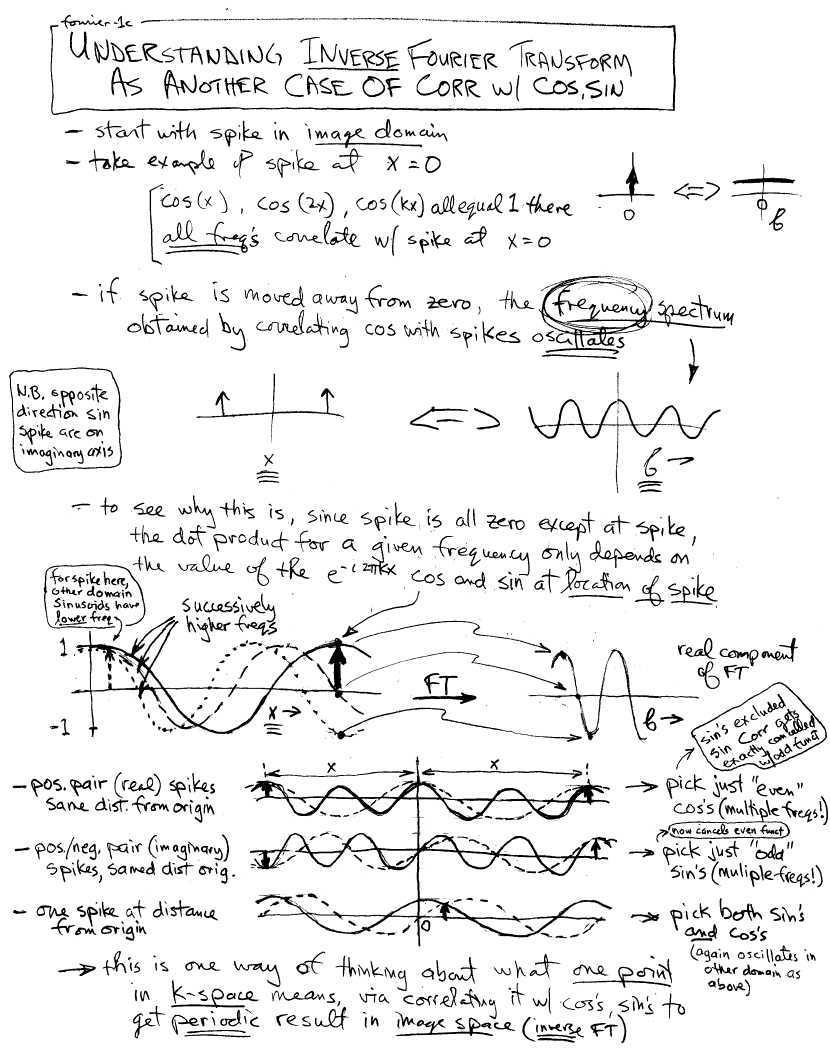 fourier-1c
UNDERSTANDING INVERSE FOURIER TRANSFORM
AS ANOTHER CASE OF CORR W/ COS, SIN
- start with spike in image domain
- take example of spike at x=0
cos(x), cos(2x), cos(kx) all equal 1 there
all freq's correlate w/ spike at x=0
0
<=>
0
f
- if spike is moved away from zero, the frequency spectrum
obtained by correlating cos with spikes oscillates
N.B. opposite
direction sin
spike are on
imaginary axis
x
<=>
f →
- to see why this is, since spike is all zero except at spike,
the dot product for a given frequency only depends on
the value of the e^-i2πkx cos and sin at location of spike
for spike here,
other domain
sinusoids have
lower freq
successively
higher freqs
1
-1
x →
FT
real component
of FT
f →
sin's excluded
sin corr gets
exactly cancelled
w/odd funct
x
x
- pos. pair (real) spikes
same dist. from origin
→ pick just "even"
cos's (multiple freqs!)
now cancels even funct
- pos/neg, pair (imaginary)
spikes, samed dist orig.
→ pick just "odd"
sin's (muliple-freqs!)
- one spike at distance
from origin
0
→ pick both sin's
and cos's
(again oscillates in
other domain as
above)
→ this is one way of thinking about what one point
in k-space means, via correlating it w/ cos's, sin's to
get periodic result in image space (inverse FT)